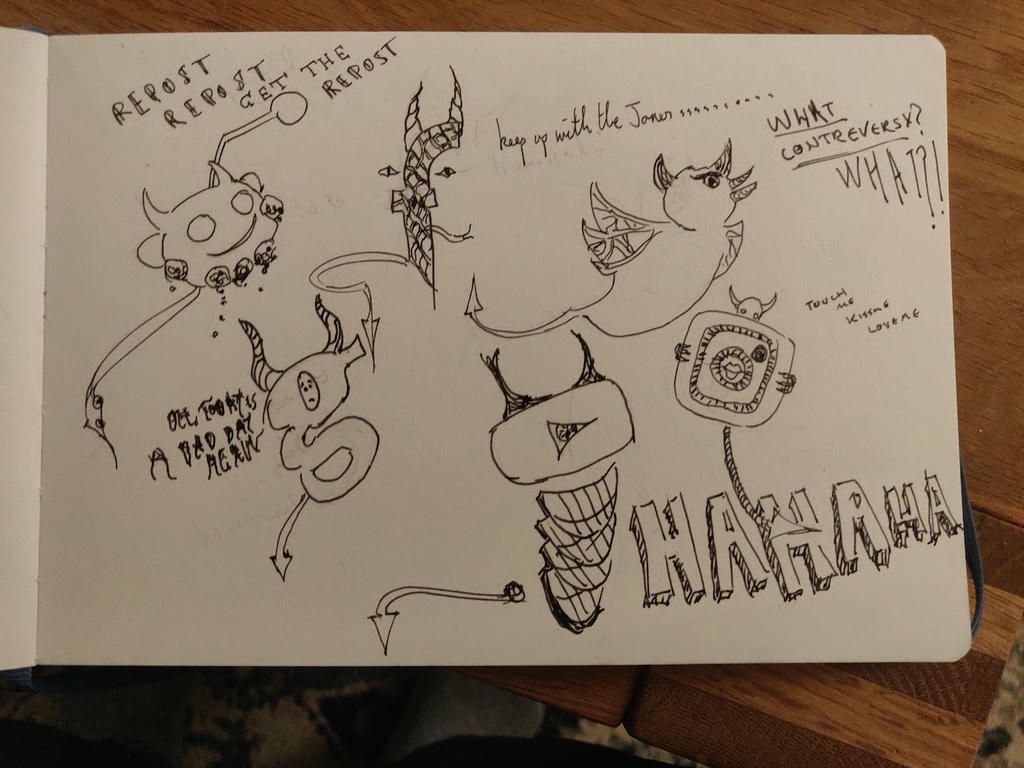 REPOST
REPOST
GET THE
REPOST
keep up with the Jones...........
WHAT
CONTREVERSY?
WHAT?!
TOUCH
ME
KISSME
LOVEME
TODAY IS
A BAD DAY
AGAIN
HAHAHAHA